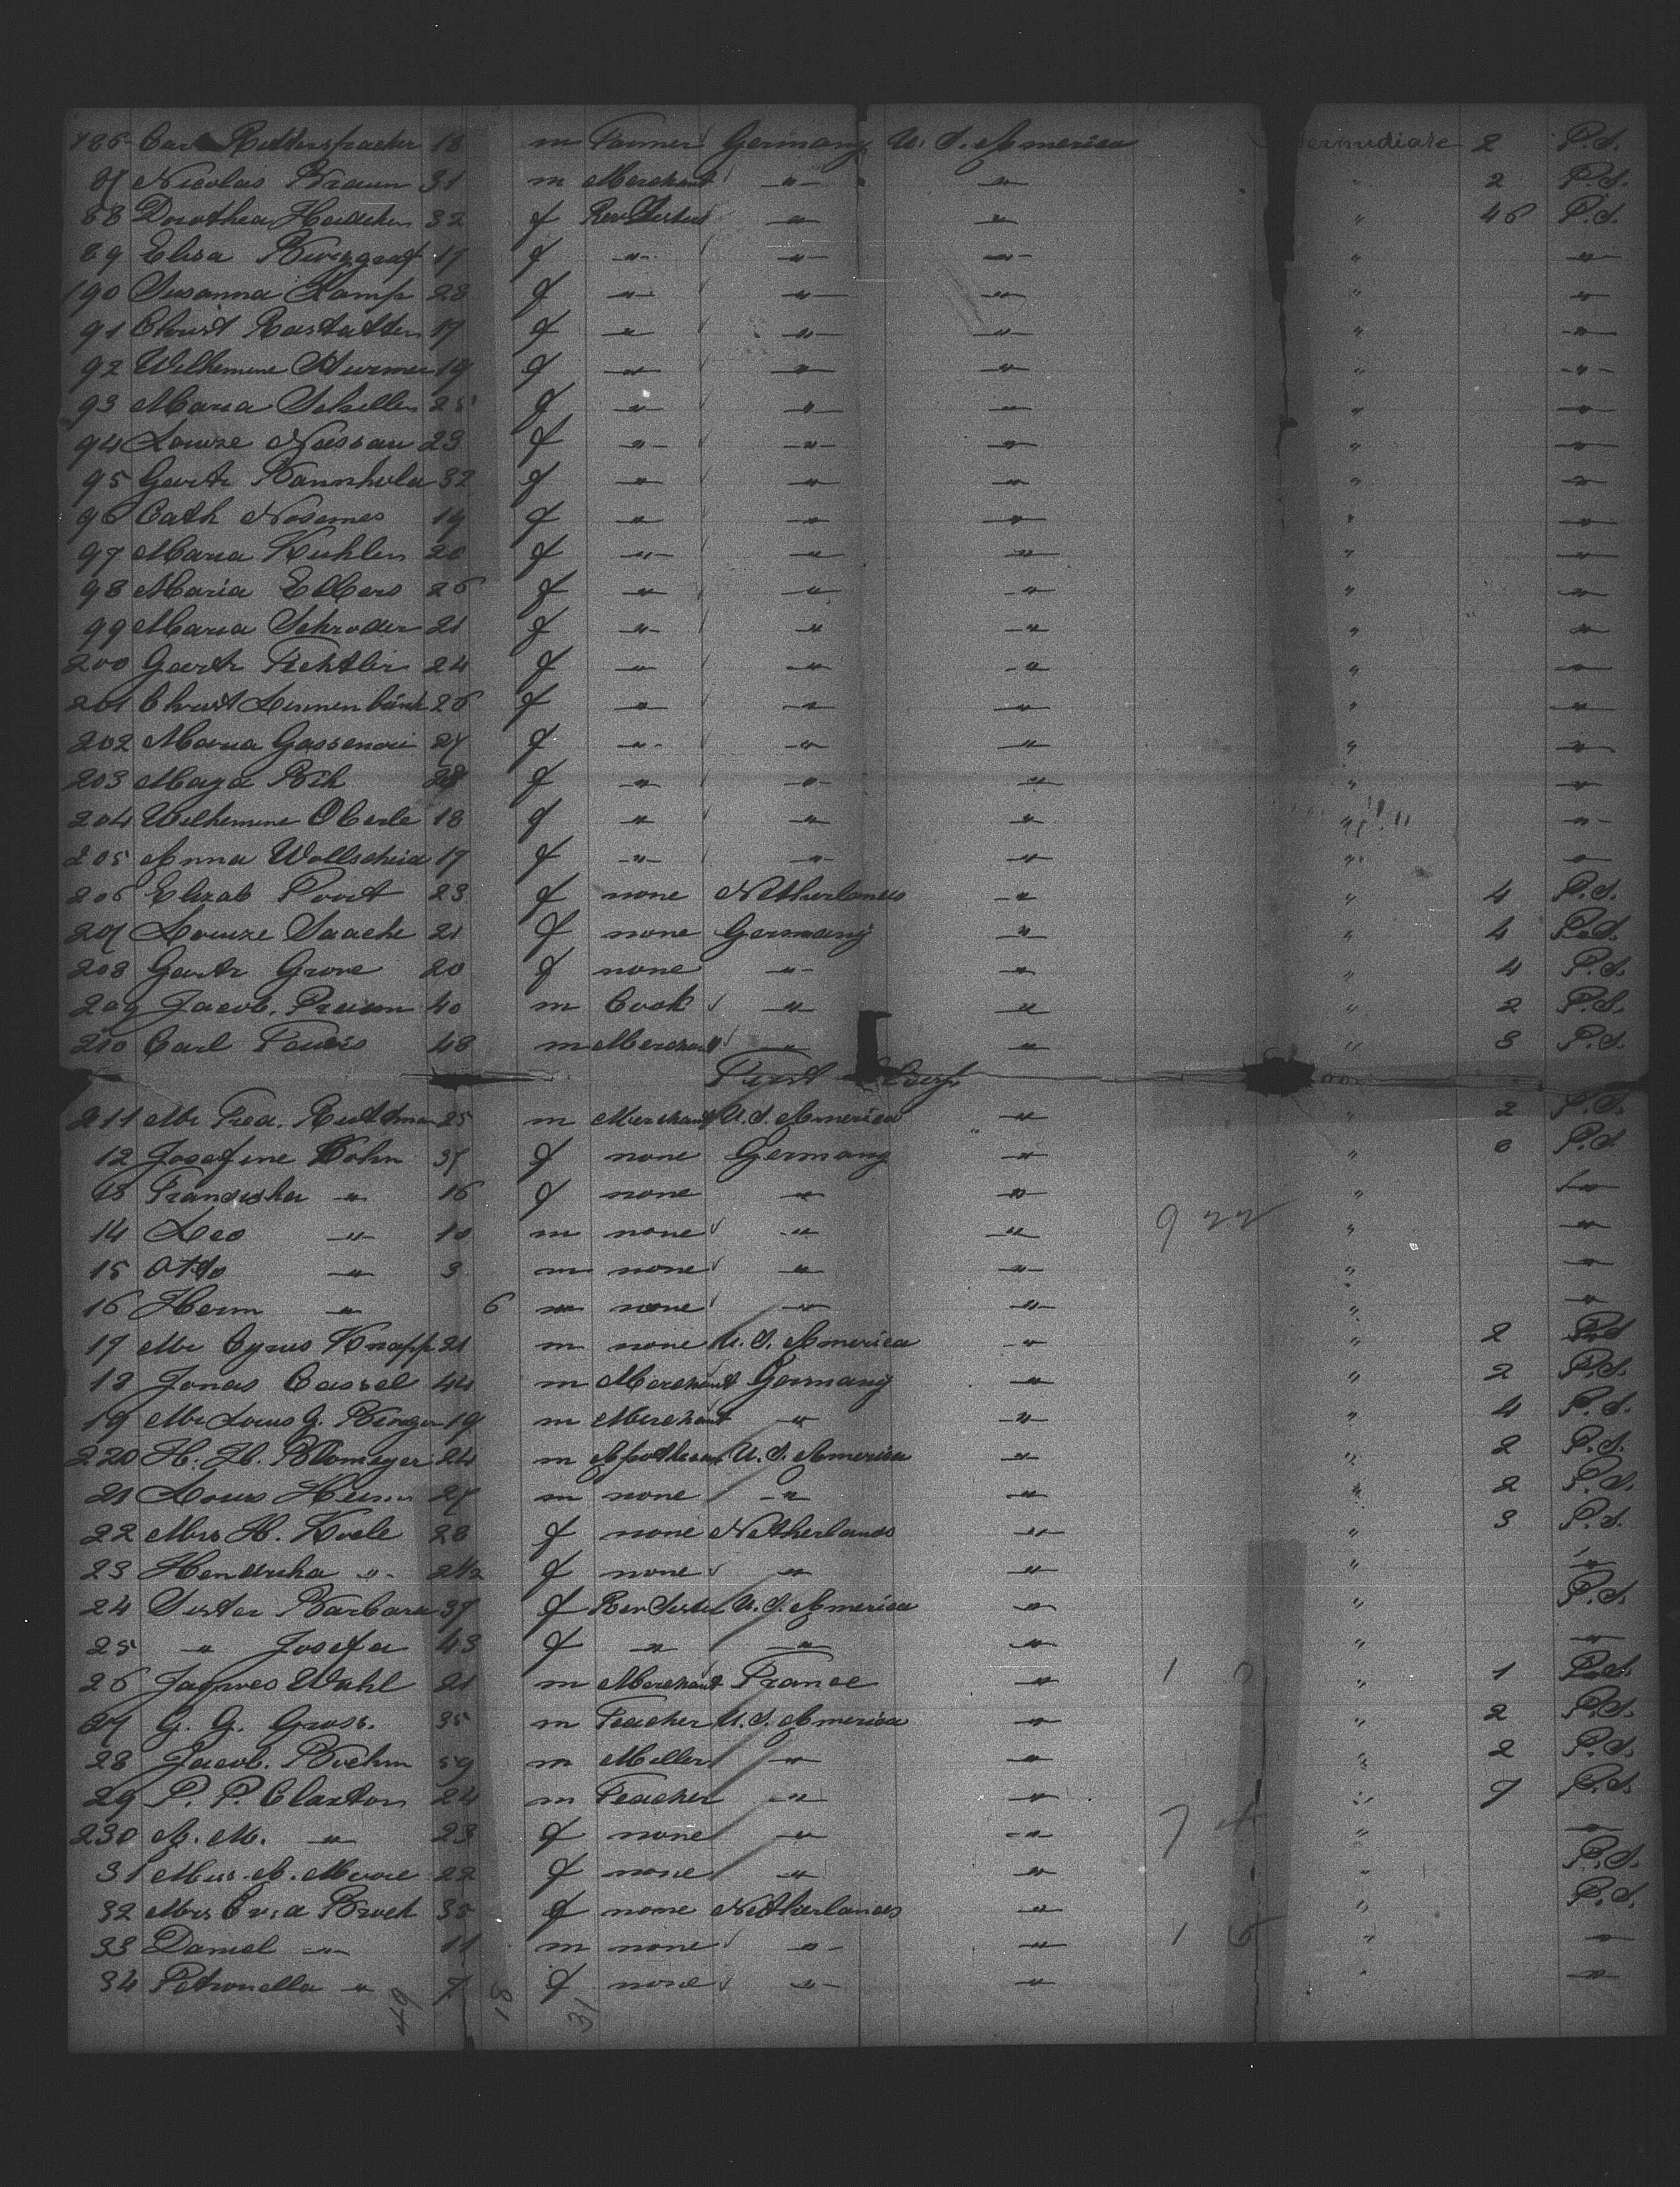 186 Carl Rittersbacher 18 m Farmer Germany U. S. America ermediate 2 P.S.
87 Nicolas Braun 31 m Merchant " " " 2 P.S.
88 Dorothea 32 f Rev Sisters " " " 46 P.S.
89 Elisa Burggraf 17 f " " " " "
190 Susanna Kamp 28 f " " " " "
91 Christ Rastatter 17 f " " " " "
92 Wilhemine Sturmer 19 f " " " " "
93 Maria Schiller 25 f " " " " "
94 Louize Nassau 23 f " " " " "
95 Gertr 32 f " " " " "
96 Cath Nosemes 19 f " " " " "
97 Maria Kuhlen 20 f " " " " "
98 Maria Elbers 26 f " " " " "
99 Maria Schroder 21 f " " " " "
200 Gertr Fichtler 24 f " " " " "
201 Christ 26 f " " " " "
202 Maria 27 f " " " " "
203 Maga 28 f " " " " "
204 Wilhemine Oberle 18 f " " " " "
205 Anna Wollscheid 17 f " " " " "
206 Elizab Poort 23 f none Netherlands " " 4 P.S.
207 Louize Saache 21 f none Germany " " 4 P.S.
208 Gertr Grone 20 f none " " " 4 P.S.
209 Jacob. Praum 40 m Cook " " " 2 P.S.
210 Carl 48 m Merchant " " " 3 P.S.
First
211 Mr Fred. Ruttman 25 m Merchant U.S. America " " 2 P.S.
12 Josefine Kohn 37 f none Germany " " 8 P.S.
13 Franziska " 16 f none " " " "
14 Leo " 10 m none " " 9 22 " "
15 Otto " 3 m none " " " "
16 Herm " 6 m none " " " "
17 Mr Cyrus Knapp 21 m none U. S. America " " 2 P.S.
18 Jonas Cassel 44 m Merchant Germany " " 2 P.S.
19 Mr Louis G. 19 m Merchant " " " 4 P.S.
220 H. H. Blomeyer 24 m U. S. America " " 2 P.S.
21 Louis 27 m none " " " 2 P.S.
22 Mrs H. 28 f none Netherlands " " 3 P.S.
23 Hendrika " 2½ f none " " " "
24 Sister Barbara 37 f Rev Sister U. S. America " " P.S.
25 " Josefa 43 f " " " " "
26 Jaques Wahl 21 m Merchant France " 1 " 1 P.S.
27 G. G. Gross. 35 m Teacher U. S. America " " 2 P.S.
28 Jacob. Boehm 59 m Miller " " " 2 P.S.
29 P. P. Claxton 24 m Teacher " " " 7 P.S.
230 A. M. " 23 f none " " 7 " "
31 Miss. A. Moore 22 f none " " " P.S.
32 Mrs 35 f none Netherlands " " P.S.
33 Daniel " 11 m none " " 1 6 " "
34 Petronella " 7 f none " " " "
49 18 31